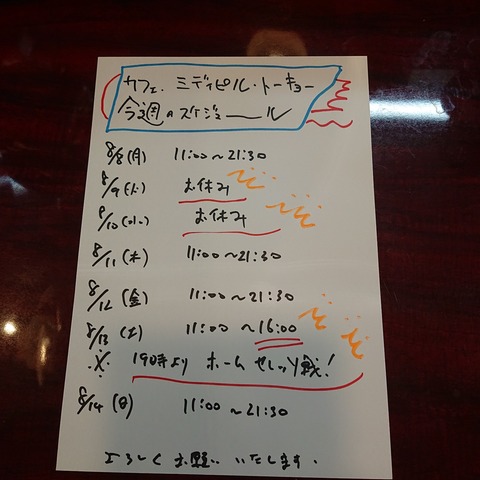 カフェ. ミディピル・トーキョー
今週のスケジュール
8/8(月) 11:00~21:30
8/9(火) お休み
8/10(水) お休み
8/11(木) 11:00~21:30
8/12(金) 11:00~21:30
8/13(土) 11:00~16:00
※ 19時より ホーム セレッソ戦!
8/14(日) 11:00~21:30
よろしく お願い いたします.